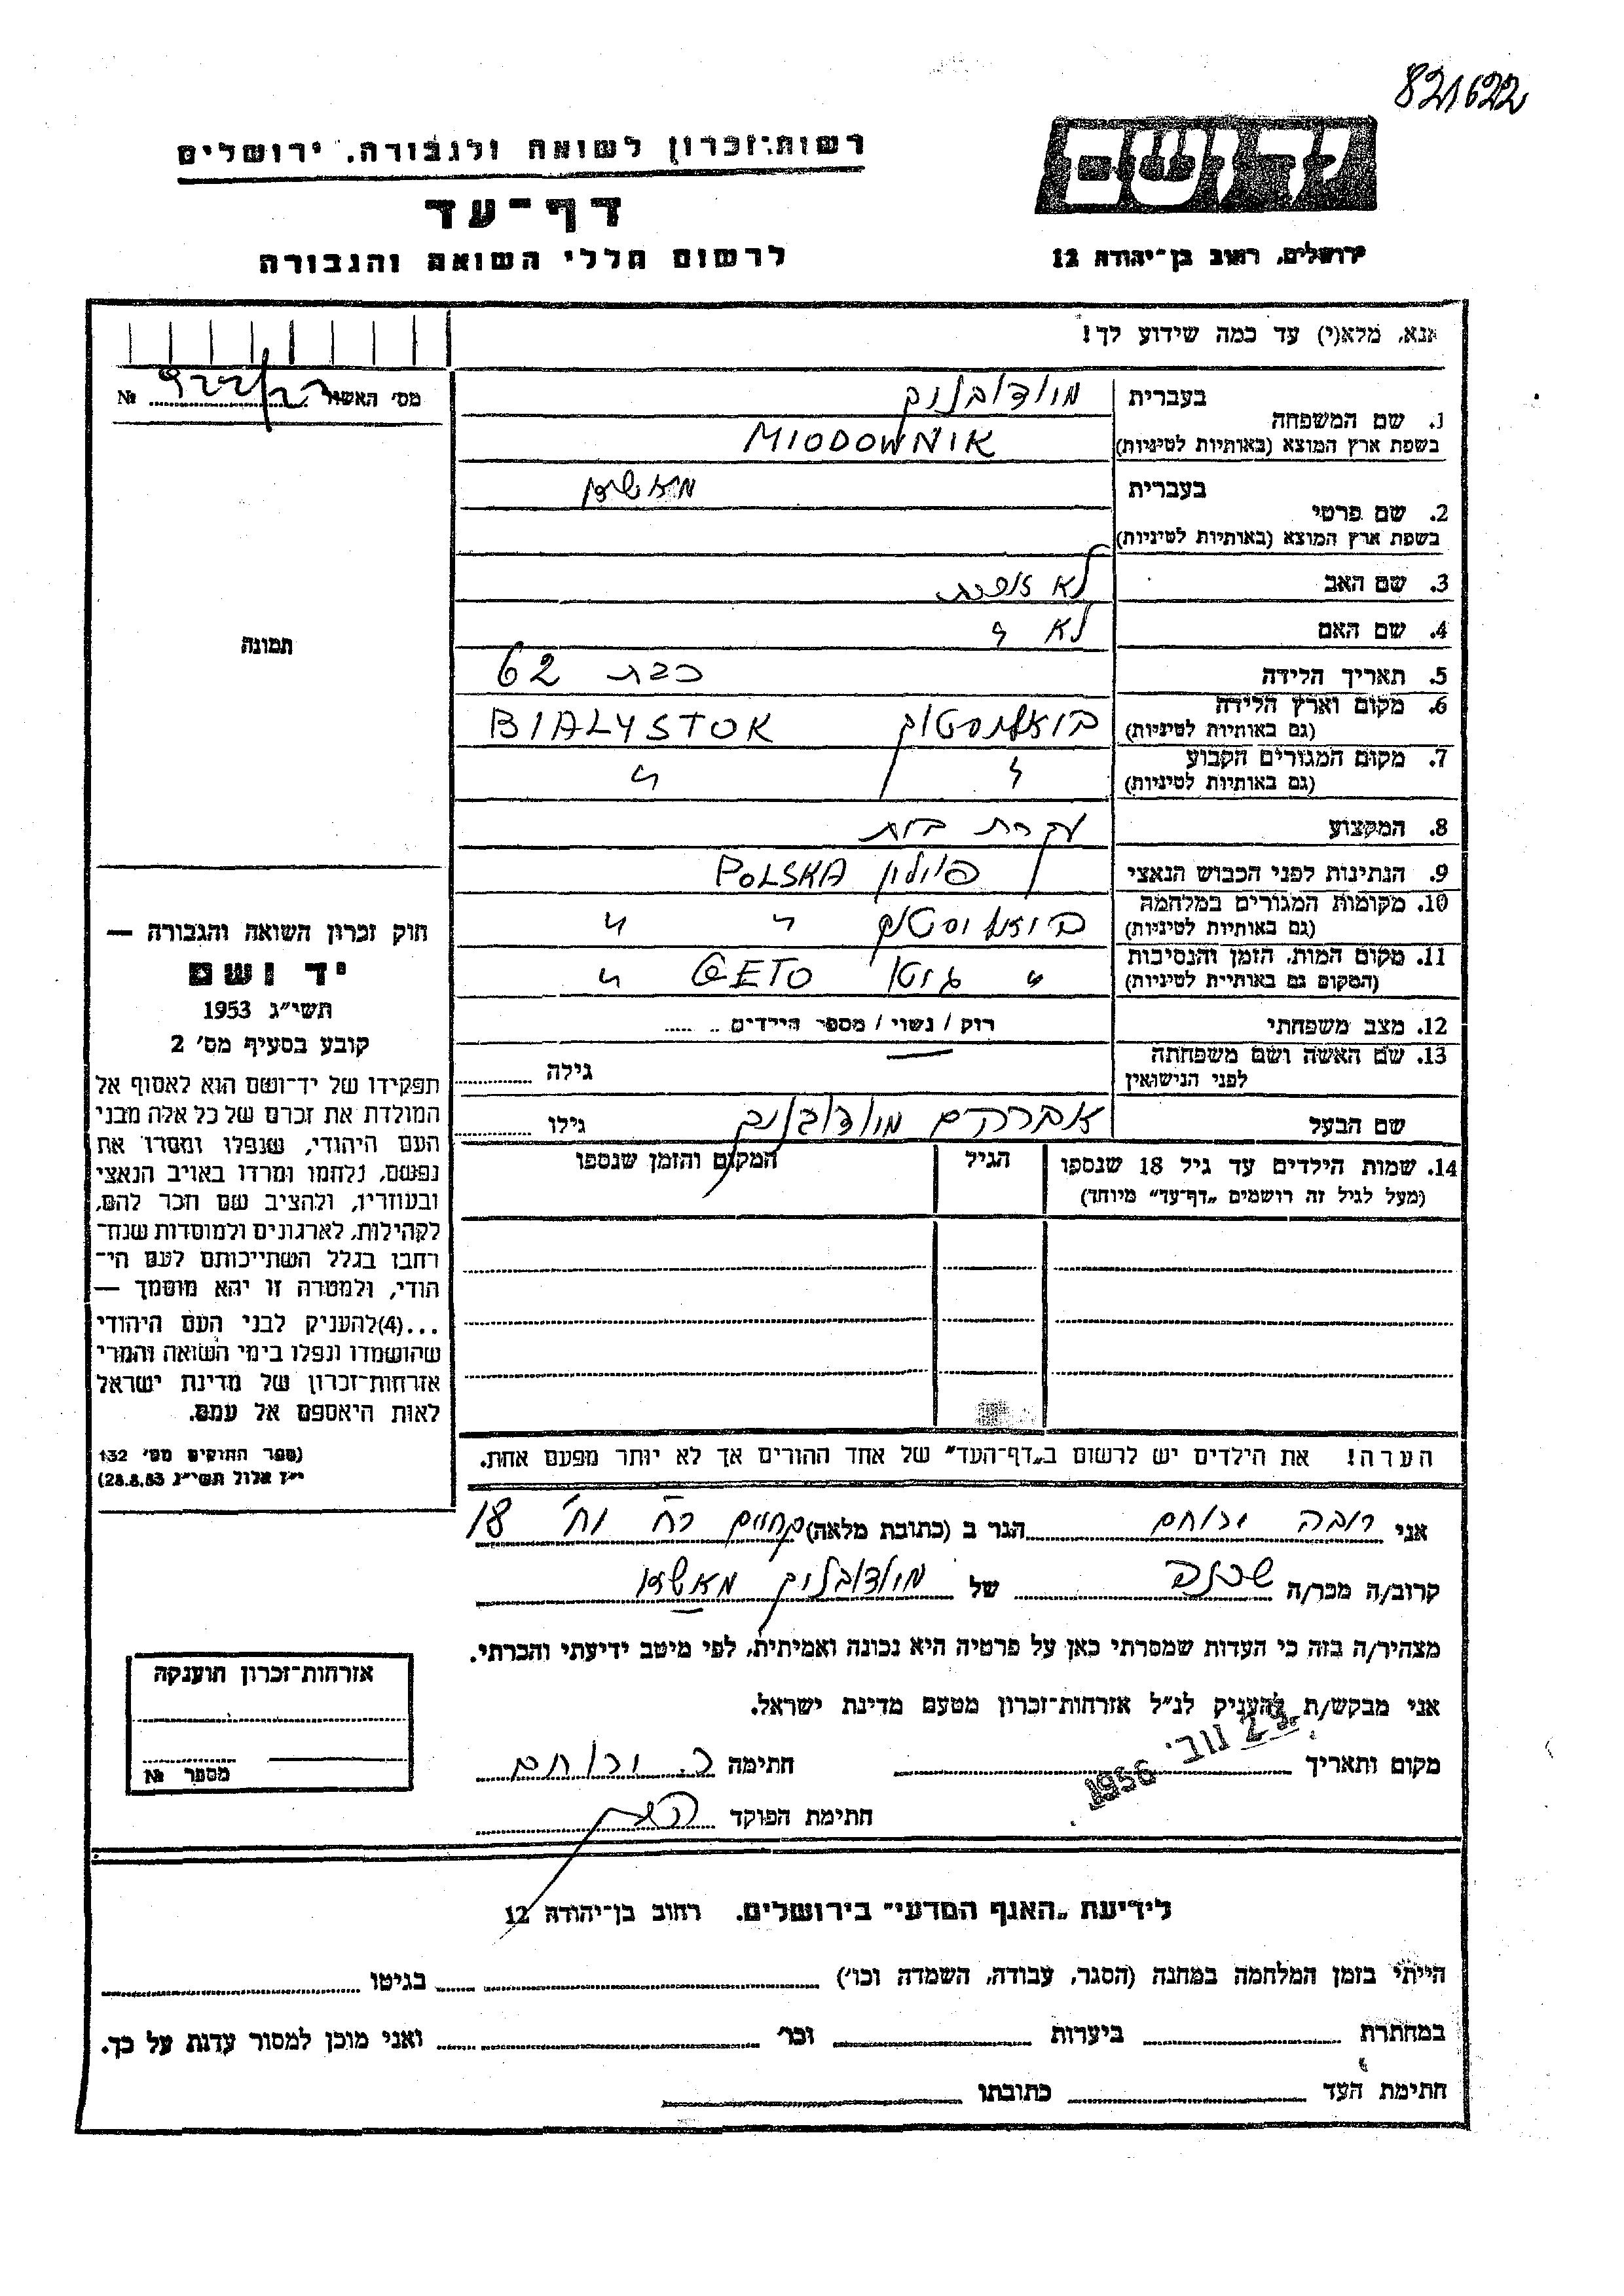 821622
רשות־זכרון לשואה ולגבורה, ירושלים
דף־עד
לרשום חללי השואה והגבורה
יד ושם
ירושלים, רחוב בן־יהודה 12
אנא, מלא(י) עד כמה שידוע לך!
מס׳ האשה №
1. שם המשפחה בעברית מיודובניק
בשפת ארץ המוצא (באותיות לטיניות) MIODOWNIK
2. שם פרטי בעברית מאשא
בשפת ארץ המוצא (באותיות לטיניות)
3. שם האב לא
4. שם האם לא "
5. תאריך הלידה כבת 62
6. מקום וארץ הלידה (גם באותיות לטיניות) ביאליסטוק BIALYSTOK
7. מקום המגורים הקבוע (גם באותיות לטיניות) " "
8. המקצוע עקרת בית
9. הנתינות לפני הכבוש הנאצי פולין POLSKA
10. מקומות המגורים במלחמה (גם באותיות לטיניות) ביאליסטוק " "
11. מקום המות, הזמן והנסיבות (המקום גם באותיות לטיניות) " גיטו GETO "
12. מצב משפחתי רוק / נשוי / מספר הילדים
13. שם האשה ושם משפחתה לפני הנישואין גילה
שם הבעל אברהם מיודובניק גילו
14. שמות הילדים עד גיל 18 שנספו הגיל המקום והזמן שנספו
(מעל לגיל זה רושמים „דף־עד״ מיוחד)
הערה! את הילדים יש לרשום ב„דף־העד״ של אחד ההורים אך לא יותר מפעם אחת.
תמונה
חוק זכרון השואה והגבורה —
יד ושם
תשי״ג 1953
קובע בסעיף מס׳ 2
תפקידו של יד־ושם הוא לאסוף אל
המולדת את זכרם של כל אלה מבני
העם היהודי, שנפלו ומסרו את
נפשם, נלחמו ומרדו באויב הנאצי
ובעוזריו, ולהציב שם וזכר להם,
לקהילות, לארגונים ולמוסדות שנח־
רבו בגלל השתייכותם לעם הי־
הודי, ולמטרה זו יהא מוסמך —
...(4)להעניק לבני העם היהודי
שהושמדו ונפלו בימי השואה והמרי
אזרחות־זכרון של מדינת ישראל
לאות היאספם אל עמם.
(ספר החוקים מס׳ 132
י״ז אלול תשי״ג 28.8.53)
אני ירוחם הגר ב (כתובת מלאה) 18
קרוב/ה מכר/ה שכנה של מיודובניק מאשא
מצהיר/ה בזה כי העדות שמסרתי כאן על פרטיה היא נכונה ואמיתית, לפי מיטב ידיעתי והכרתי.
אני מבקש/ת להעניק לנ״ל אזרחות־זכרון מטעם מדינת ישראל.
מקום ותאריך נוב׳ 1956 חתימה ר. ירוחם
חתימת הפוקד
אזרחות־זכרון הוענקה
מספר №
לידיעת „האגף המדעי״ בירושלים. רחוב בן־יהודה 12
הייתי בזמן המלחמה במחנה (הסגר, עבודה, השמדה וכו׳) בגיטו
במחתרת ביערות וכו׳ ואני מוכן למסור עדות על כך.
חתימת העד כתובתו